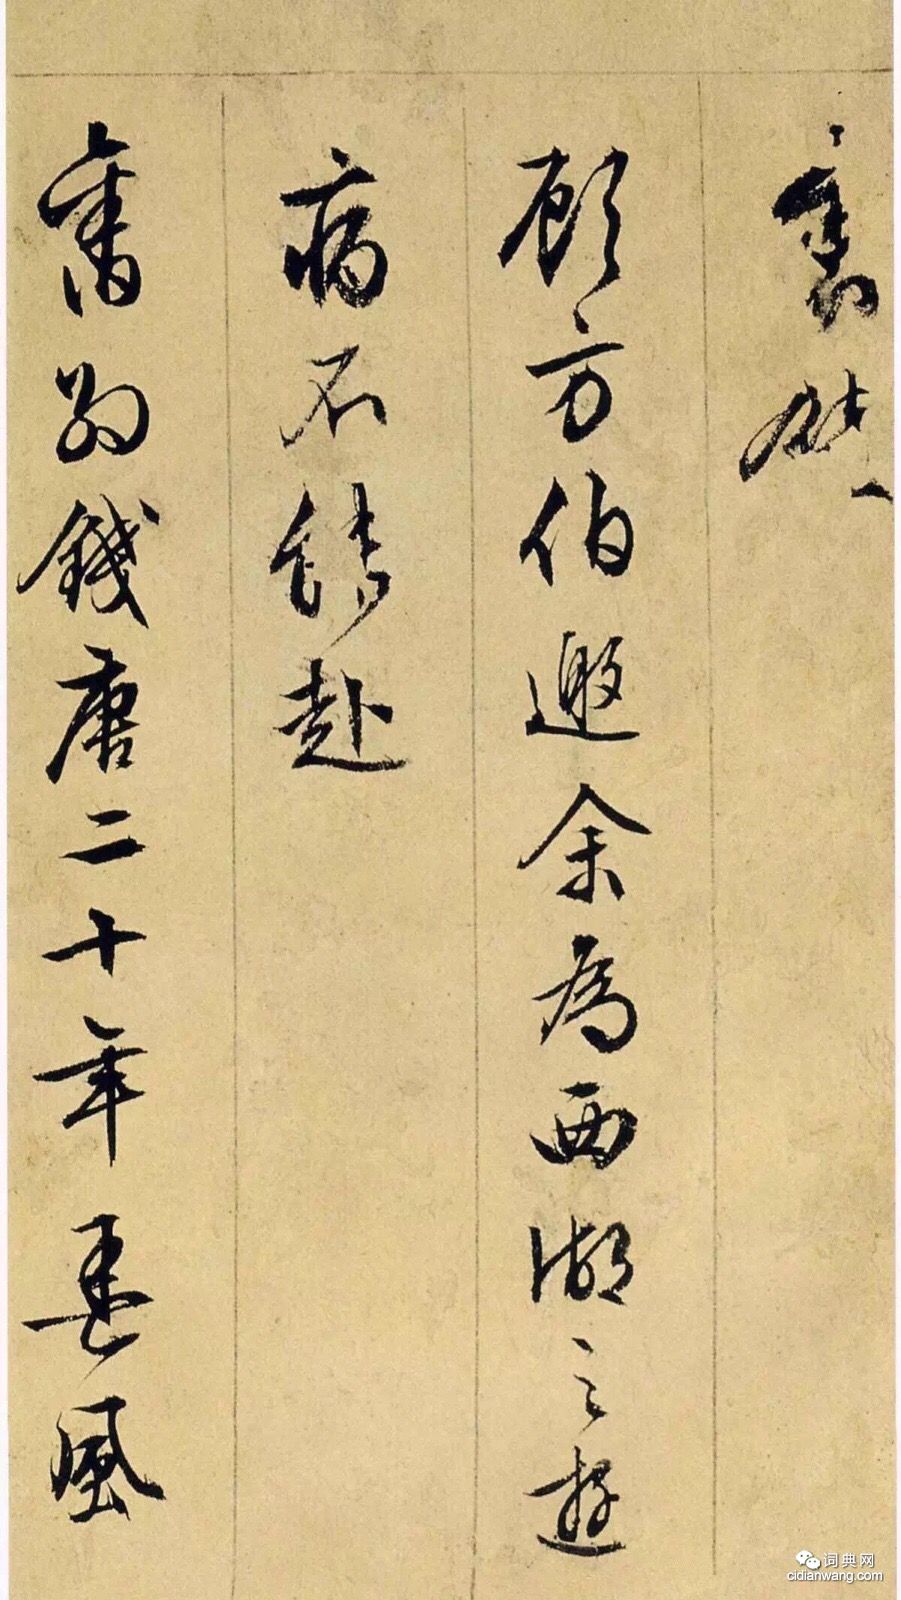 顧方伯邀余為西湖之遊
病不能赴
舊別錢唐二十年春風
词典网
cidianwang.com